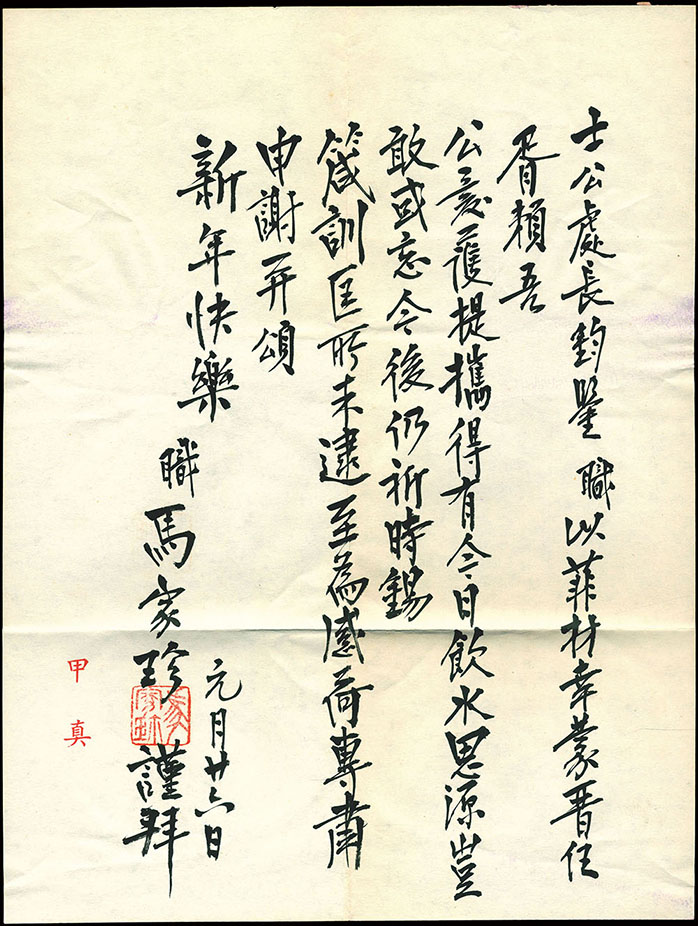 士公處長鈞鑒 職以菲材幸蒙晉任
胥賴吾
公愛護提攜得有今日飲水思源豈
敢或忘今後仍祈時錫
箴訓匡所未逮至為感荷專肅
申謝并頌
新年快樂
職馬家珍謹拜
元月廿六日
馬家珍
甲真